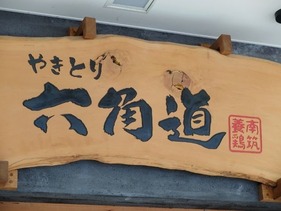 やきとり
六角道
南筑
養鶏